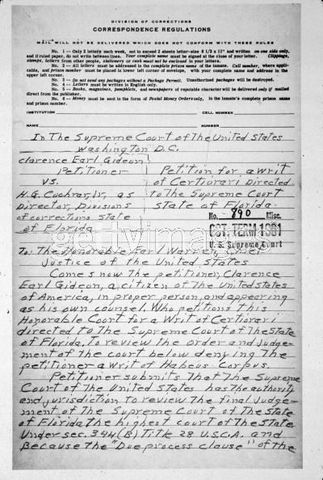 DIVISION OF CORRECTIONS
CORRESPONDENCE REGULATIONS
MAIL WILL NOT BE DELIVERED WHICH DOES NOT CONFORM WITH THESE RULES
No. 1 -- Only 2 letters each week, not to exceed 2 sheets letter-size 8 1/2 x 11" and written on one side only,
and if ruled paper, do not write between lines. Your complete name must be signed at the close of your letter. Clippings,
stamps, letters from other people, stationery or cash must not be enclosed in your letters.
No. 2 -- All letters must be addressed in the complete prison name of the inmate. Cell number, where applicable,
and prison number must be placed in lower left corner of envelope, with your complete name and address in the
upper left corner.
No. 3 -- Do not send any packages without a Package Permit. Unauthorized packages will be destroyed.
No. 4 -- Letters must be written in English only.
No. 5 -- Books, magazines, pamphlets, and newspapers of reputable character will be delivered only if mailed
direct from the publisher.
No. 6 -- Money must be sent in the form of Postal Money Orders only, in the inmate's complete prison name
and prison number.
INSTITUTION
CELL NUMBER
NAME
NUMBER
In The Supreme Court of The United States
Washington D.C.
Clarence Earl Gideon
Petitioner
vs.
H.G. Cochran, Jr., as
Director, Divisions
of corrections state
of Florida
Petition for a writ
of Certiorari Directed
to The Supreme Court
State of Florida.
No. 890 Misc.
OCT. TERM 1961
U. S. Supreme Court
To: The Honorable Earl Warren, Chief
Justice of the United States
Comes now the petitioner, Clarence
Earl Gideon, a citizen of The United states
of America, in proper person, and appearing
as his own counsel. Who petitions this
Honorable Court for a Writ of Certiorari
directed to The Supreme Court of The State
of Florida, To review the order and Judge-
ment of the court below denying The
petitioner a writ of Habeus Corpus.
Petitioner submits That The Supreme
Court of The United States has The authority
and jurisdiction to review the final Judge-
ment of The Supreme Court of The State
of Florida the highest court of The State
Under sec. 344(B) Title 28 U.S.C.A. and
Because the "Due process clause" of the